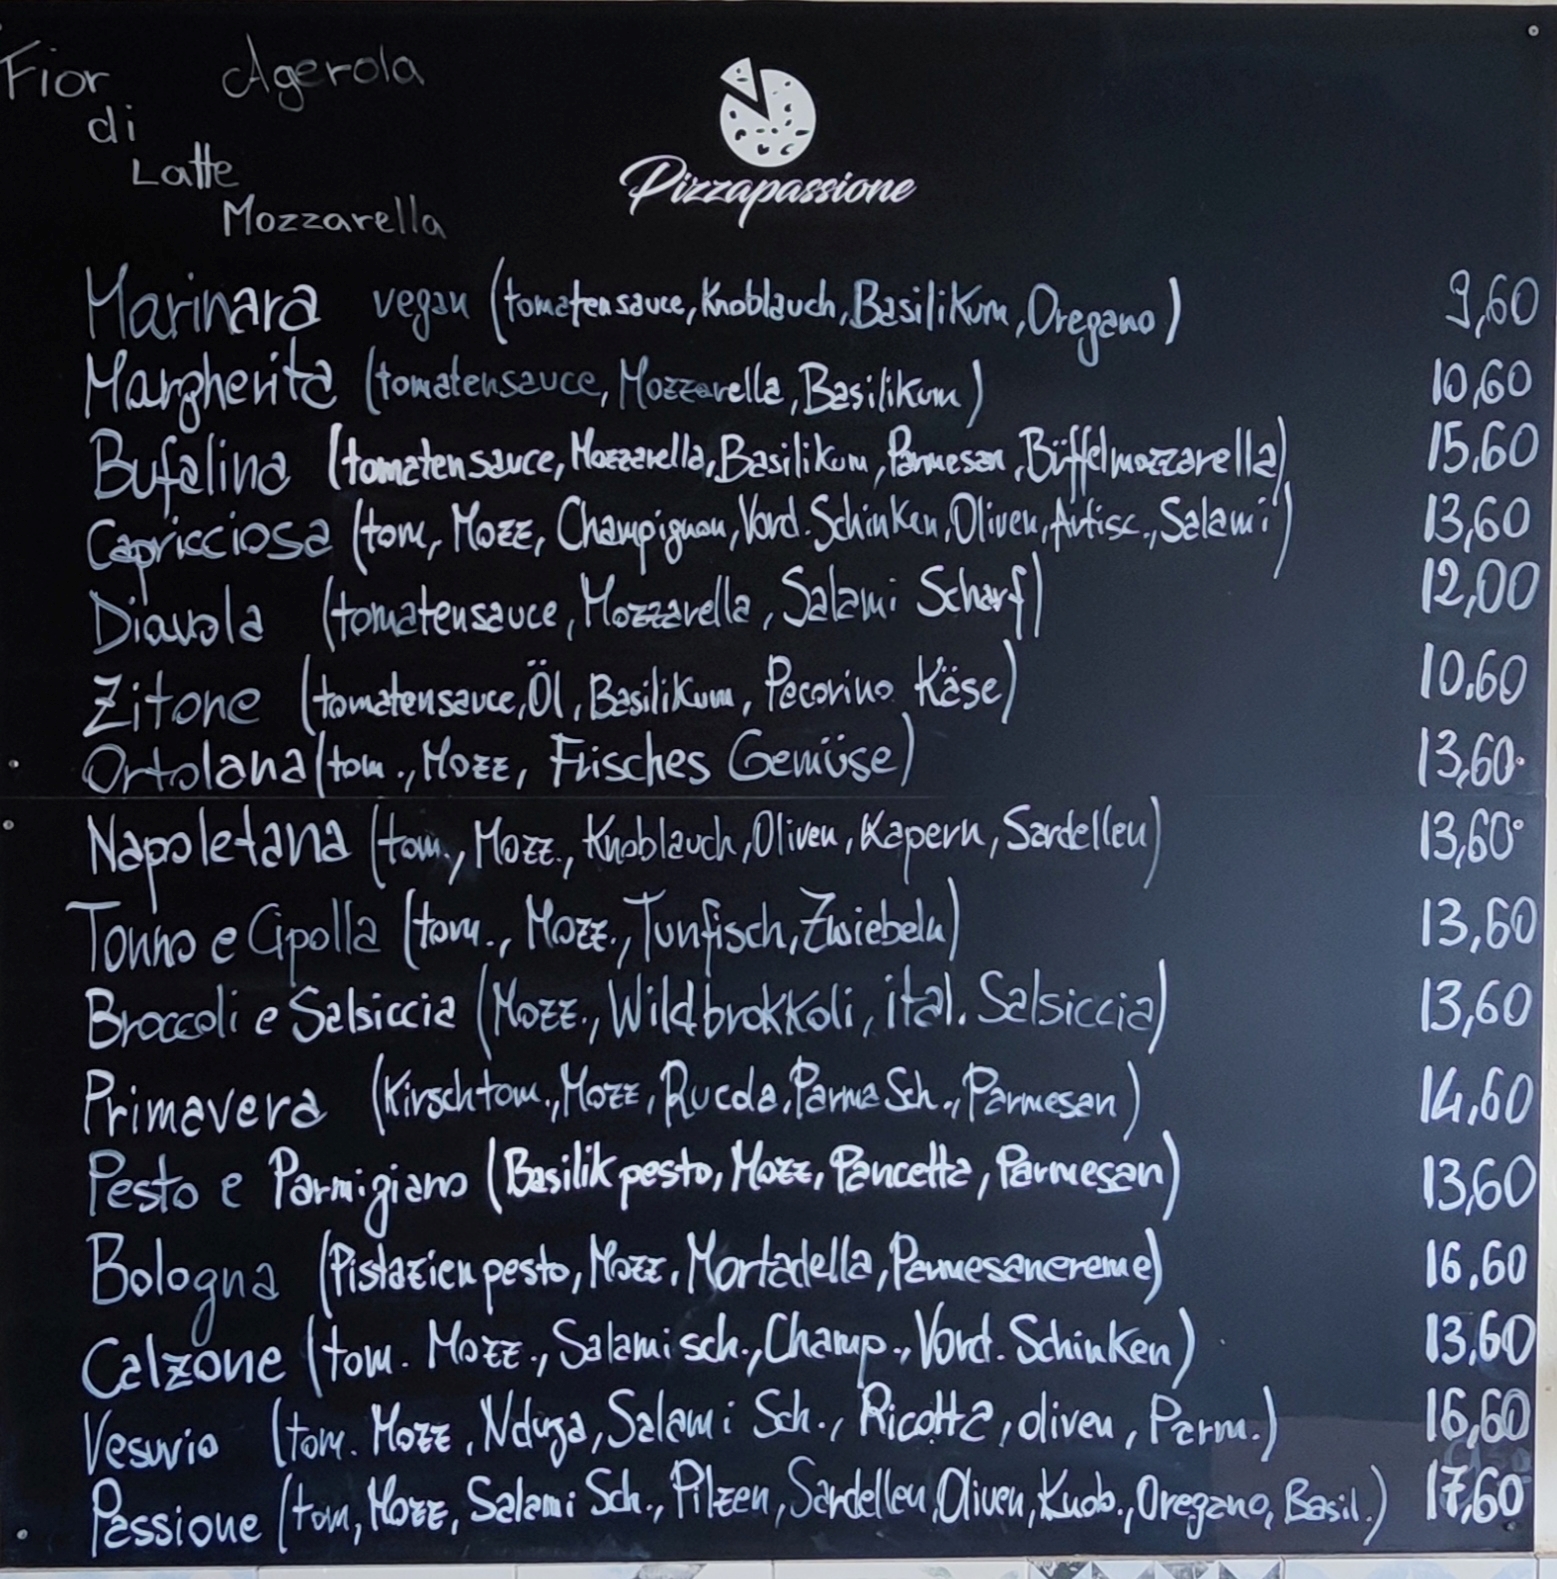 Fior Agerola
di
Latte
Mozzarella
Pizzapassione
Marinara vegan (tomatensauce, Knoblauch, Basilikum, Oregano) 9,60
Margherita (tomatensauce, Mozzarella, Basilikum) 10,60
Bufalina (tomatensauce, Mozzarella, Basilikum, Parmesan, Büffelmozzarella) 15,60
Capricciosa (tom, Mozz, Champignon, Vord. Schinken, Oliven, Artisc., Salami) 13,60
Diavola (tomatensauce, Mozzarella, Salami Scharf) 12,00
Zitone (tomatensauce, Öl, Basilikum, Pecorino Käse) 10,60
Ortolana (tom., Mozz, Frisches Gemüse) 13,60
Napoletana (tom., Mozz., Knoblauch, Oliven, Kapern, Sardellen) 13,60
Tonno e Cipolla (tom., Mozz., Tunfisch, Zwiebeln) 13,60
Broccoli e Salsiccia (Mozz., Wildbrokkoli, ital. Salsiccia) 13,60
Primavera (Kirschtom., Mozz, Rucola, Parma Sch., Parmesan) 14,60
Pesto e Parmigiano (Basilikpesto, Mozz, Pancetta, Parmesan) 13,60
Bologna (Pistazienpesto, Mozz, Mortadella, Parmesancreme) 16,60
Calzone (tom. Mozz., Salami sch., Champ., Vord. Schinken) 13,60
Vesuvio (tom. Mozz, Nduja, Salami Sch., Ricotta, oliven, Parm.) 16,60
Passione (tom, Mozz, Salami Sch., Pilzen, Sardellen, Oliven, Knob., Oregano, Basil.) 17,60